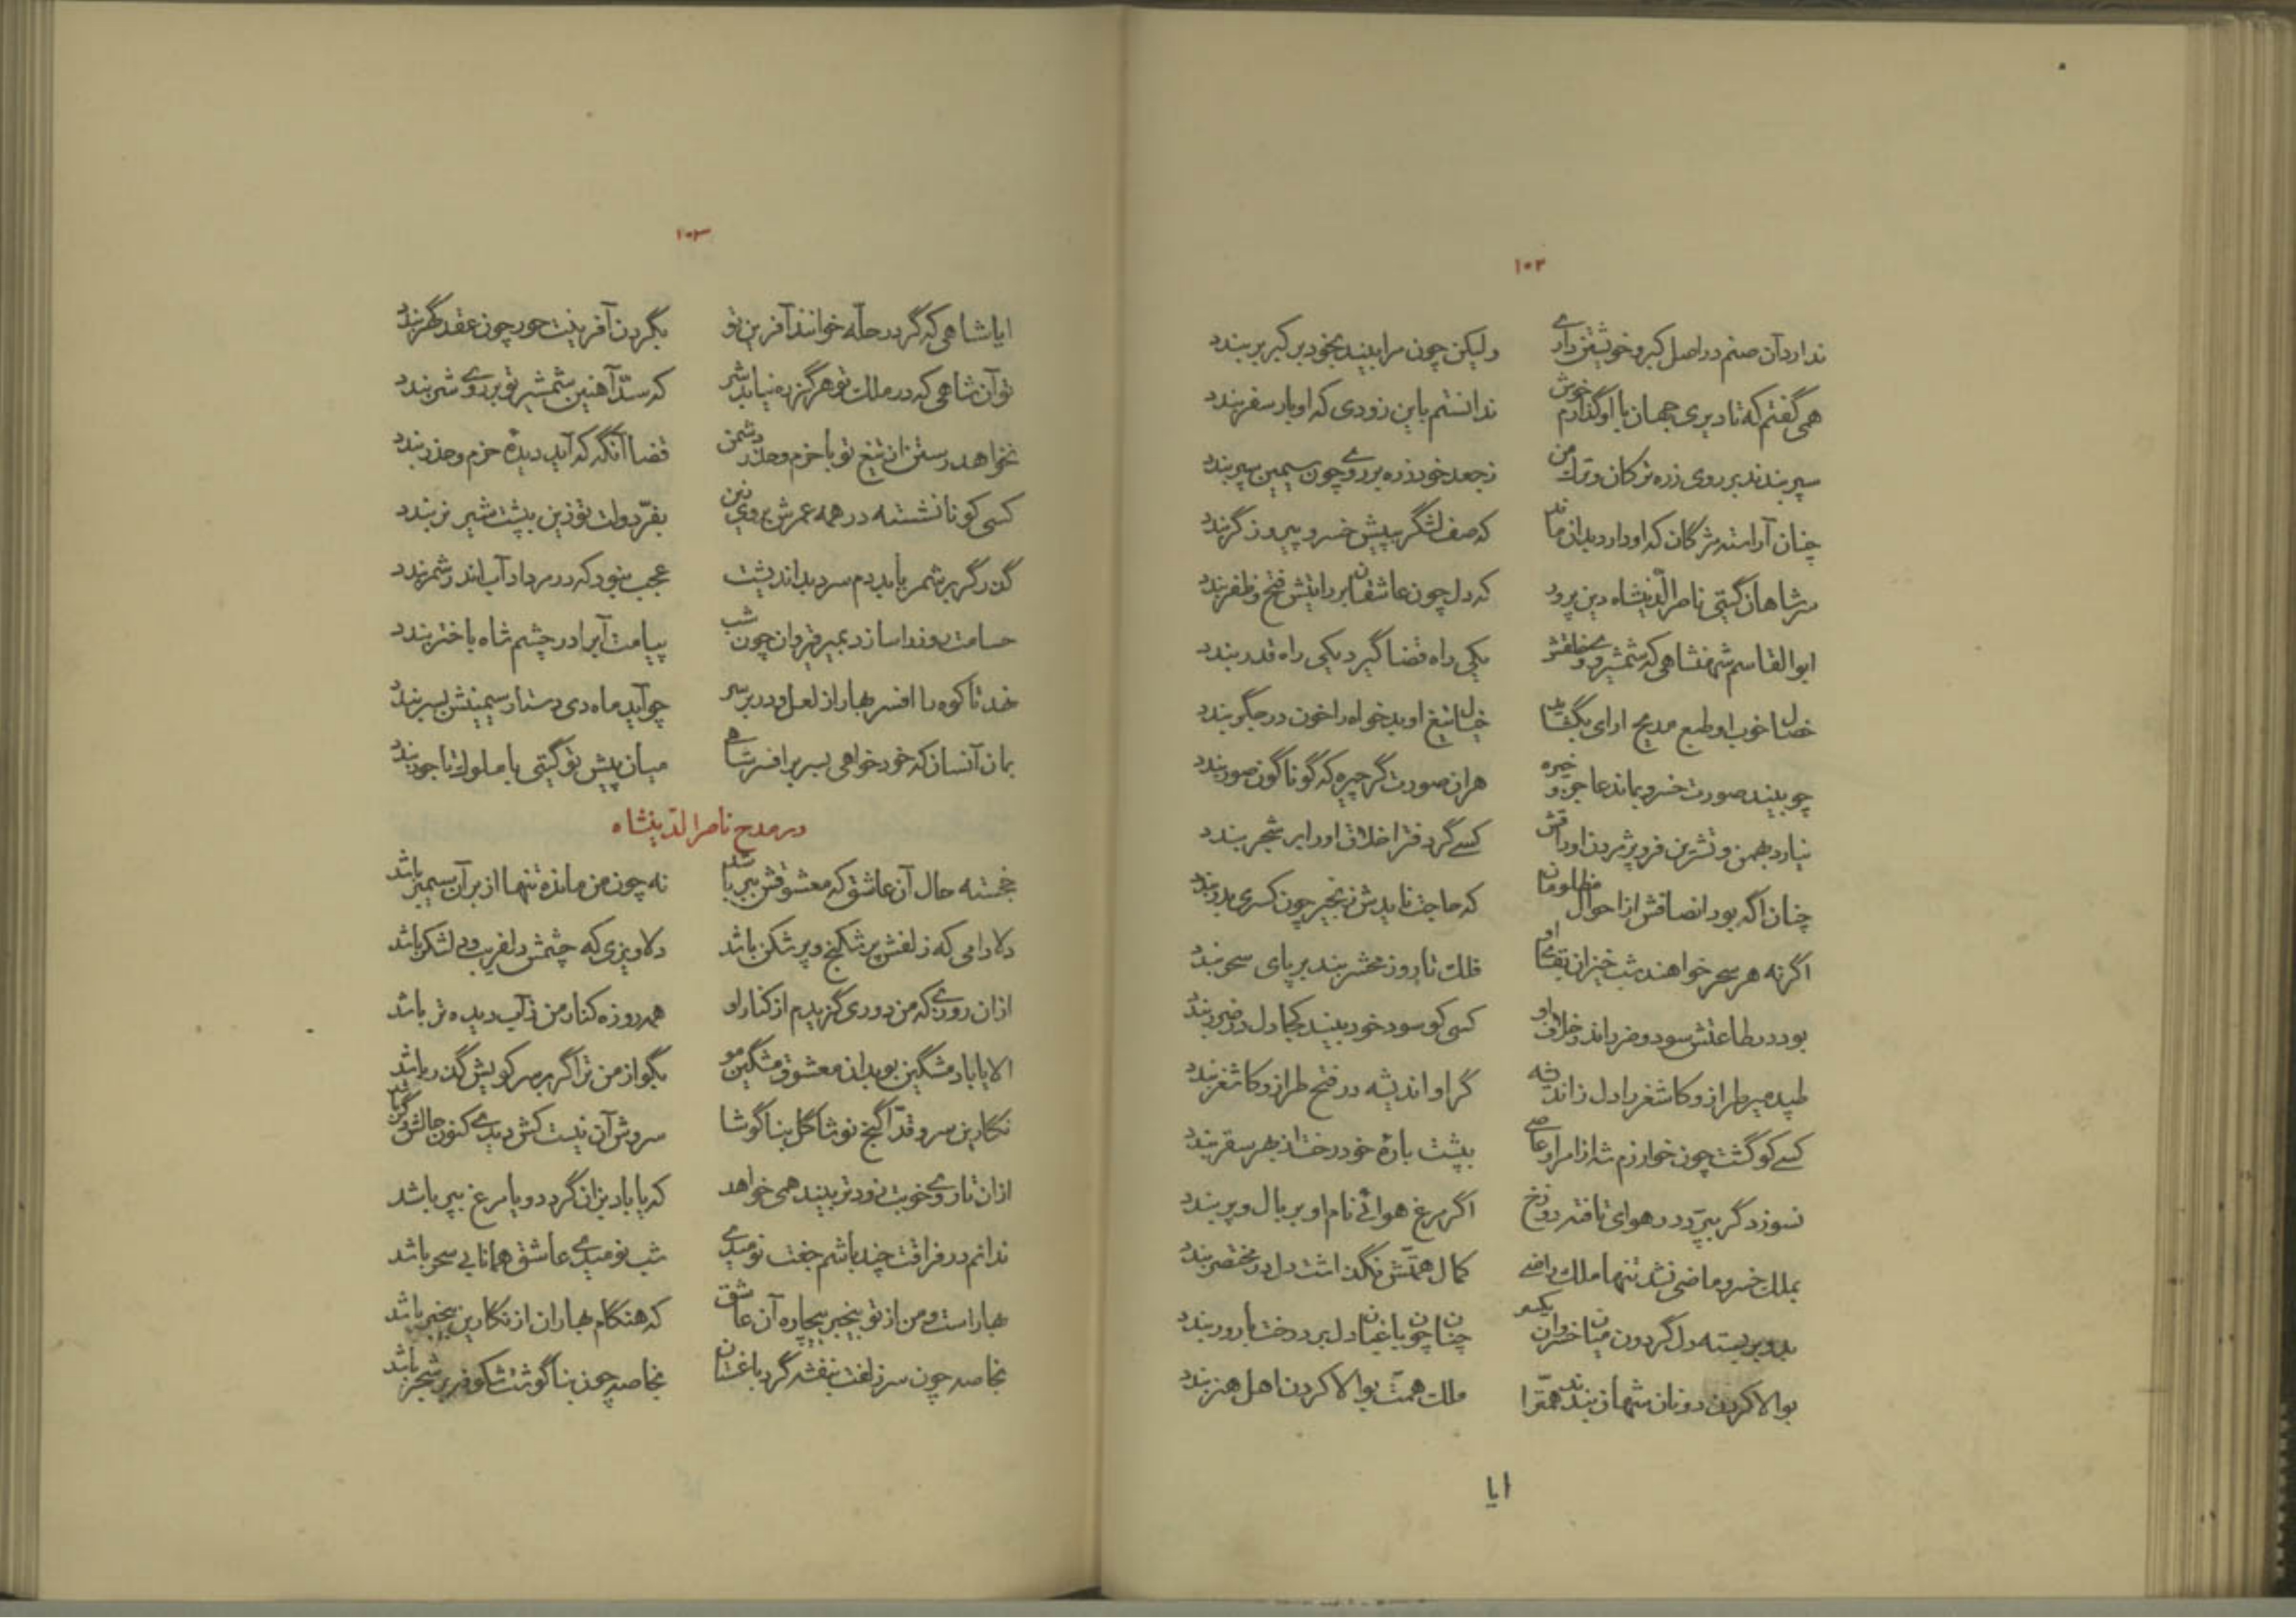 ۱۰۲
ندارد آن صنم در اصل کبر و خویشتن داری ولیکن چون مرا بیند بخود بر کبر بربندد
همی گفتم که تا دیری جهان با او گذارم خوش ندانستم باین زودی که او بار سفر بندد
سپر بندند بر روی زره ترکان و ترک من ز جعد خود زره بر روی چون سیمین سپر بندد
چنان آراسته مژگان که او دارد بدان ماند که صف لشگر بپیش خسرو پیروزگر بندد
سر شاهان گیتی ناصرالدینشاه دین پرور که دل چون عاشقان بر رایتش فتح و ظفر بندد
ابوالقاسم شهنشاهی که شمشیر وی و خلقش یکی راه قضا گیرد یکی راه قدر بندد
خصال خوب او طبع مدیح ارای بگشاید خیال تیغ او بدخواه را خون در جگر بندد
چو بیند صورت خسرو بماند عاجز و خیره هران صورت گر چیره که گوناگون صور بندد
نیارد بهمن و تشرین فرو پژمردن اوراقش کسی گر دفتر اخلاق او را بر شجر بندد
چنان اگه بود انصافش از احوال مظلومان که حاجت نایدش زنجیر چون کسری بدر بندد
اگرنه هر سحر خواهند شب خیزان بقای او فلک تا روز محشر بند بر پای سحر بندد
بود در طاعتش سود و ضرر اندر خلاف او کسی کو سود خود بیند کجا دل در ضرر بندد
طپد میر طراز و کاشغر را دل ز اندیشه گر او اندیشه در فتح طراز و کاشغر بندد
کسی کو گشت چون خوارزم شه از امر او عاصی بپشت بارهٔ خود رخت از بهر سقر بندد
نسوزد گر بپرد در هوای تافته دوزخ اگر مرغ هوائی نام او بر بال و پر بندد
بملک خسرو ماضی نشد تنها ملک راضی کمال همتش نگذاشت دل در مختصر بندد
بدو بر بسته دل گردون میان خسروان یکسر چنان چون باغبان دل بر درخت بارور بندد
بوالا کردن دونان شهان بندند همت را ملک همت بوالا کردن اهل هنر بندد
ایا
۱۰۳
ایا شاهی که گر در حله خوانند آفرین تو بگردن آفرینت حور چون عقد گهر بندد
تو آن شاهی که در ملک تو هرگز ره نیابد شر که سدّ آهنین شمشیر تو بر روی شر بندد
نخواهد رستن از تیغ تو با حزم و حذر دشمن قضا آنگه که آید دیدهٔ حزم و حذر بندد
کسی کو نانشسته در همه عمرش بروی زین بفرّ دولت تو زین بپشت شیر نر بندد
گذر گر بر شمر یابد دم سرد بداندیشت عجب نبود که در مرداد آب اندر شمر بندد
حسامت روز را سازد بمیر قیروان چون شب پیامت آبرا در چشم شاه باختر بندد
نهد تا کوه را افسر بهار از لعل و در بر سر چو آید ماه دی دستار سیمینش بسر بندد
بمان آنسان که خود خواهی بسر بر افسر شاهی میان پیش تو گیتی با ملوک تاجور بندد
در مدح ناصرالدینشاه
خجسته حال آن عاشق که معشوقش ببر باشد نه چون من مانده تنها از بر آن سیمبر باشد
دلارامی که زلفش پر شکنج و پر شکن باشد دلاویزی که چشمش دلفریب و لشکر باشد
ازان روزی که من دوری گزیدم از کنار او همه روزه کنار من ز آب دیده تر باشد
الا یا باد مشگین بو بدان معشوق مشگین مو بگو از من ترا گر بر سر کویش گذر باشد
نگارین سرو قدّا گنج نوشا گل بناگوشا سروش آن نیست کش دیدی کنون حالش دگر باشد
ازان تا روی خوبت زودتر بیند همی خواهد که یا باد بزان گردد و یا مرغ بپر باشد
ندانم در فراقت چند باشم جفت نومیدی شب نومیدی عاشق همانا بی سحر باشد
بهار است و من از تو بیخبر بیچاره آن عاشق که هنگام بهاران از نگارین بیخبر باشد
بخاصه چون سر زلفت بنفشه گرد باغستان بخاصه چون بناگوشت شکوفه بر شجر باشد